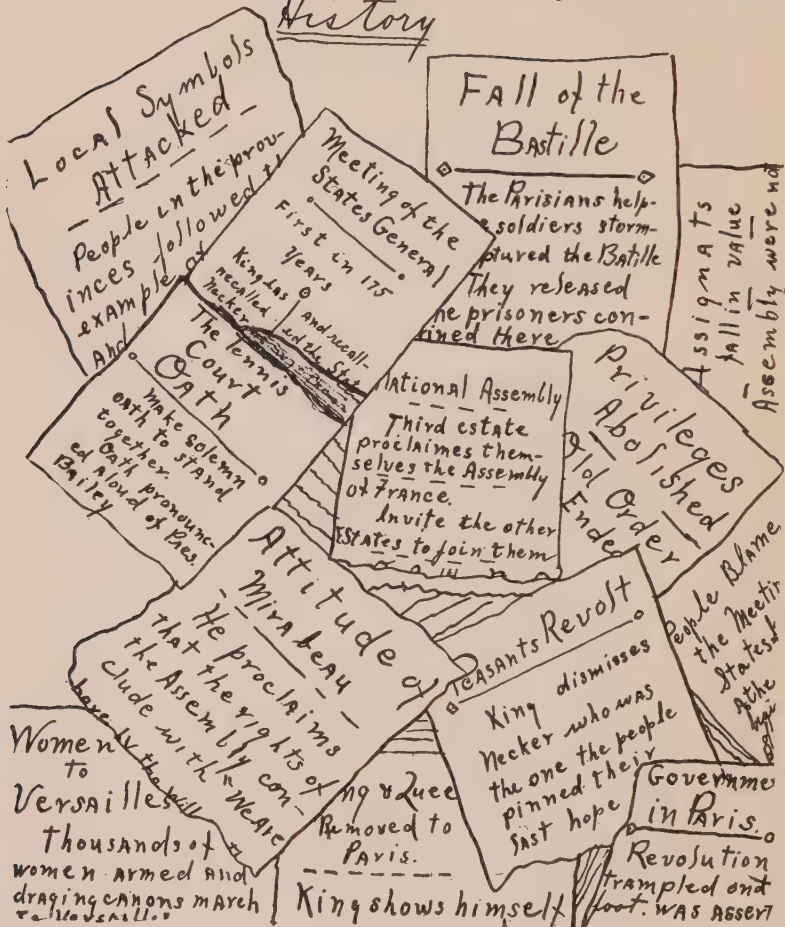 History
Local Symbols
Attacked
People in the prov-
inces followed
example of
And
Meeting of the
States General
First in 175
Years
King has
recalled
Necker
and recall-
ed the
Fall of the
Bastille
The Parisians help-
soldiers storm-
ptured the Batille
They released
he prisoners con-
ined there
Assignats
fall in value
Assembly were no
The Tennis
Court
Oath
Make solemn
oath to stand
together.
Oath pronounc-
ed aloud of Pres.
Bailey
National Assembly
Third estate
proclaimes them-
selves the Assembly
of France.
Invite the other
Estates to join them
Privileges
Abolished
Old Order
Ended
Attitude of
Mirabeau
He proclaims
that the rights of
the Assembly con-
clude with "We are
here by the will
Peasants Revolt
King dismisses
Necker who was
the one the people
pinned their
last hope
People Blame
the Meetin
States
Women
to
Versailles
Thousands of
women armed and
draging canons march
to Versailles
ng & Quee
Removed to
Paris.
King shows himself
Governme
in Paris.
Revolution
trampled ond
foot. was assert